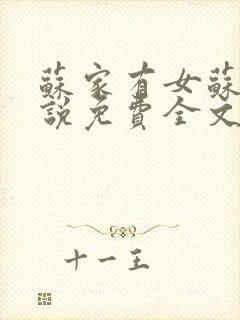 蘇家有女蘇
說免費全文
十一王